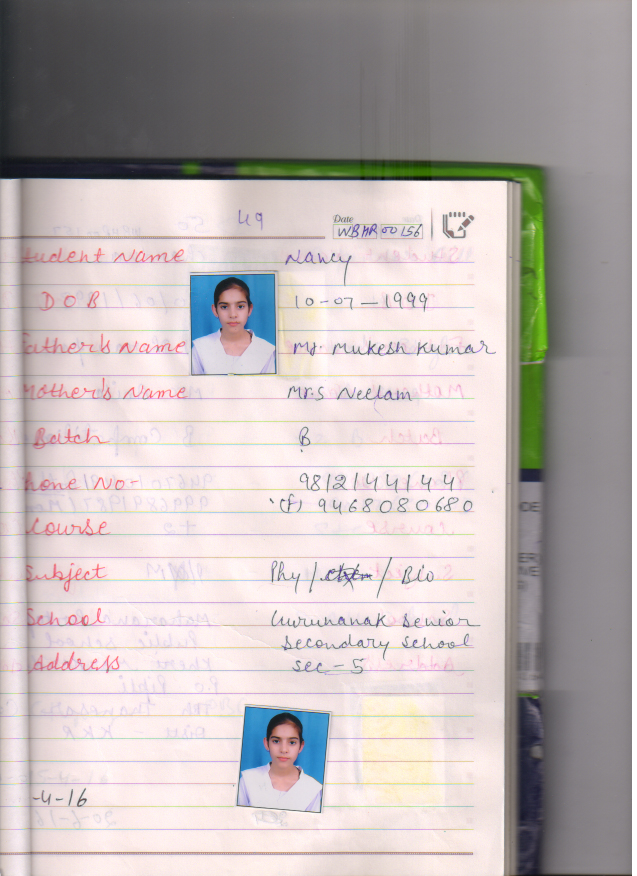 49
Date
WBHR00156
Student Name Nancy
DOB 10-07-1999
Father's Name Mr. Mukesh Kumar
Mother's Name Mrs Neelam
Batch B
Phone No- 9812144144
(f) 9468080680
Course
Subject Phy / Chem / Bio
School Gurunanak Senior
Secondary School
Address Sec-5
-4-16